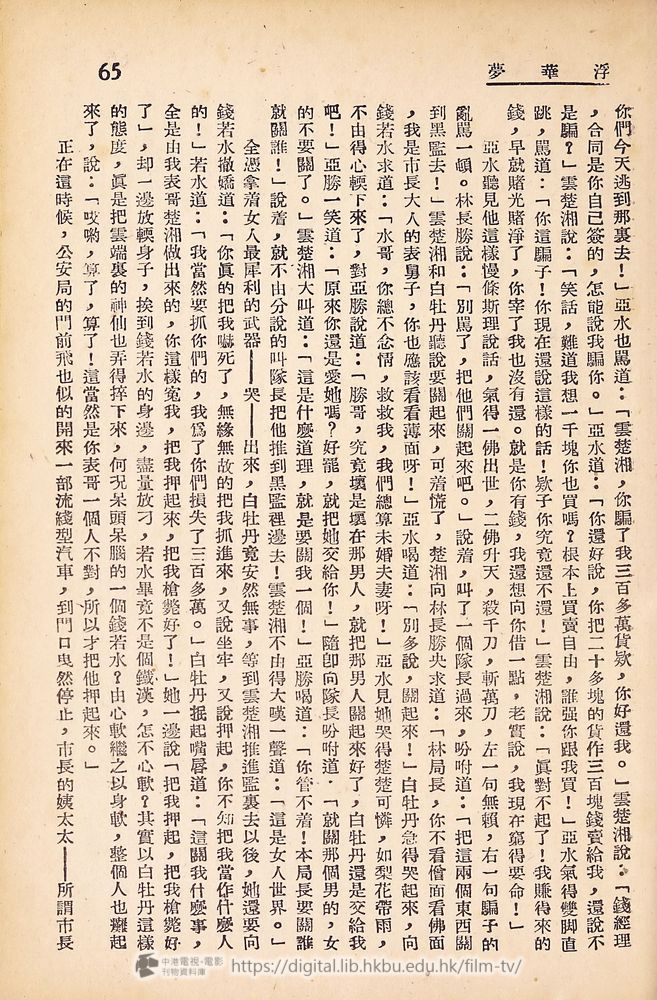 浮華夢
65
你們今天逃到那裏去！」亞水也罵道：「雲楚湘，你騙了我三百多萬貨欵，你好還我。」雲楚湘說：「錢經理
，合同是你自己簽的，怎能說我騙你。」亞水道：「你還好說，你把二十多塊的貨作三百塊錢賣給我，還說不
是騙？」雲楚湘說：「笑話，難道我想一千塊你也買嗎？根本上買賣自由，誰强你跟我買！」亞水氣得雙脚直
跳，罵道：「你這騙子！你現在還說這樣的話！欵子你究竟還不還！」雲楚湘說：「眞對不起了！我賺得來的
錢，早就賭光賭淨了，你宰了我也沒有還。就是你有錢，我還想向你借一點，老實說，我現在窮得要命！」
亞水聽見他這樣慢條斯理說話，氣得一佛出世，二佛升天，殺千刀，斬萬刀，左一句無賴，右一句騙子的
亂罵一頓。林長勝說：「別罵了，把他們關起來吧。」說着，叫了一個隊長過來，吩咐道：「把這兩個東西關
到黑監去！」雲楚湘和白牡丹聽說要關起來，可着慌了，楚湘向林長勝央求道：「林局長，你不看僧面看佛面
，我是市長大人的表舅子，你也應該看看薄面呀！」亞水喝道：「別多說，關起來！」白牡丹急得哭起來，向
錢若水求道：「水哥，你總不念情，救救我，我們總算未婚夫妻呀！」亞水見她哭得楚楚可憐，如梨花帶雨，
不由得心輭下來了，對亞勝說道：「勝哥，究竟壞是壞在那男人，就把那男人關起來好了，白牡丹還是交給我
吧！」亞勝一笑道：「原來你還是愛她嗎？好罷，就把她交給你！」隨卽向隊長吩咐道：「就關那個男的，女
的不要關了。」雲楚湘大叫道：「這是什麼道理，就是要關我一個！」亞勝喝道：「你管不着！本局長要關誰
就關誰！」說着，就不由分說的叫隊長把他推到黑監裡邊去！雲楚湘不由得大嘆一聲道：「這是女人世界。」
全憑拿着女人最犀利的武器——哭——出來，白牡丹竟安然無事，等到雲楚湘推進監裏去以後，她還要向
錢若水撒嬌道：「你眞的把我嚇死了，無緣無故的把我抓進來，又說坐牢，又說押起，你不知把我當作什麼人
的！」若水道：「我當然要抓你們的，我爲了你們損失了三百多萬。」白牡丹抿起嘴唇道：「這關我什麼事，
全是由我表哥楚湘做出來的，你這樣寃我，把我押起來，把我槍斃好了！」她一邊說「把我押起，把我槍斃好
了」，却一邊放輭身子，挨到錢若水的身邊，盡量放刁，若水畢竟不是個鐵漢，怎不心軟？其實以白牡丹這樣
的態度，眞是把雲端裏的神仙也弄得摔下來，何況呆頭呆腦的一個錢若水？由心軟繼之以身軟，整個人也癱起
來了，說：「哎喲，算了，算了！這當然是你表哥一個人不對，所以才把他押起來。」
正在這時候，公安局的門前飛也似的開來一部流綫型汽車，到門口曳然停止，市長的姨太太——所謂市長
中港電視・電影
刊物資料庫
https://digital.lib.hkbu.edu.hk/film-tv/